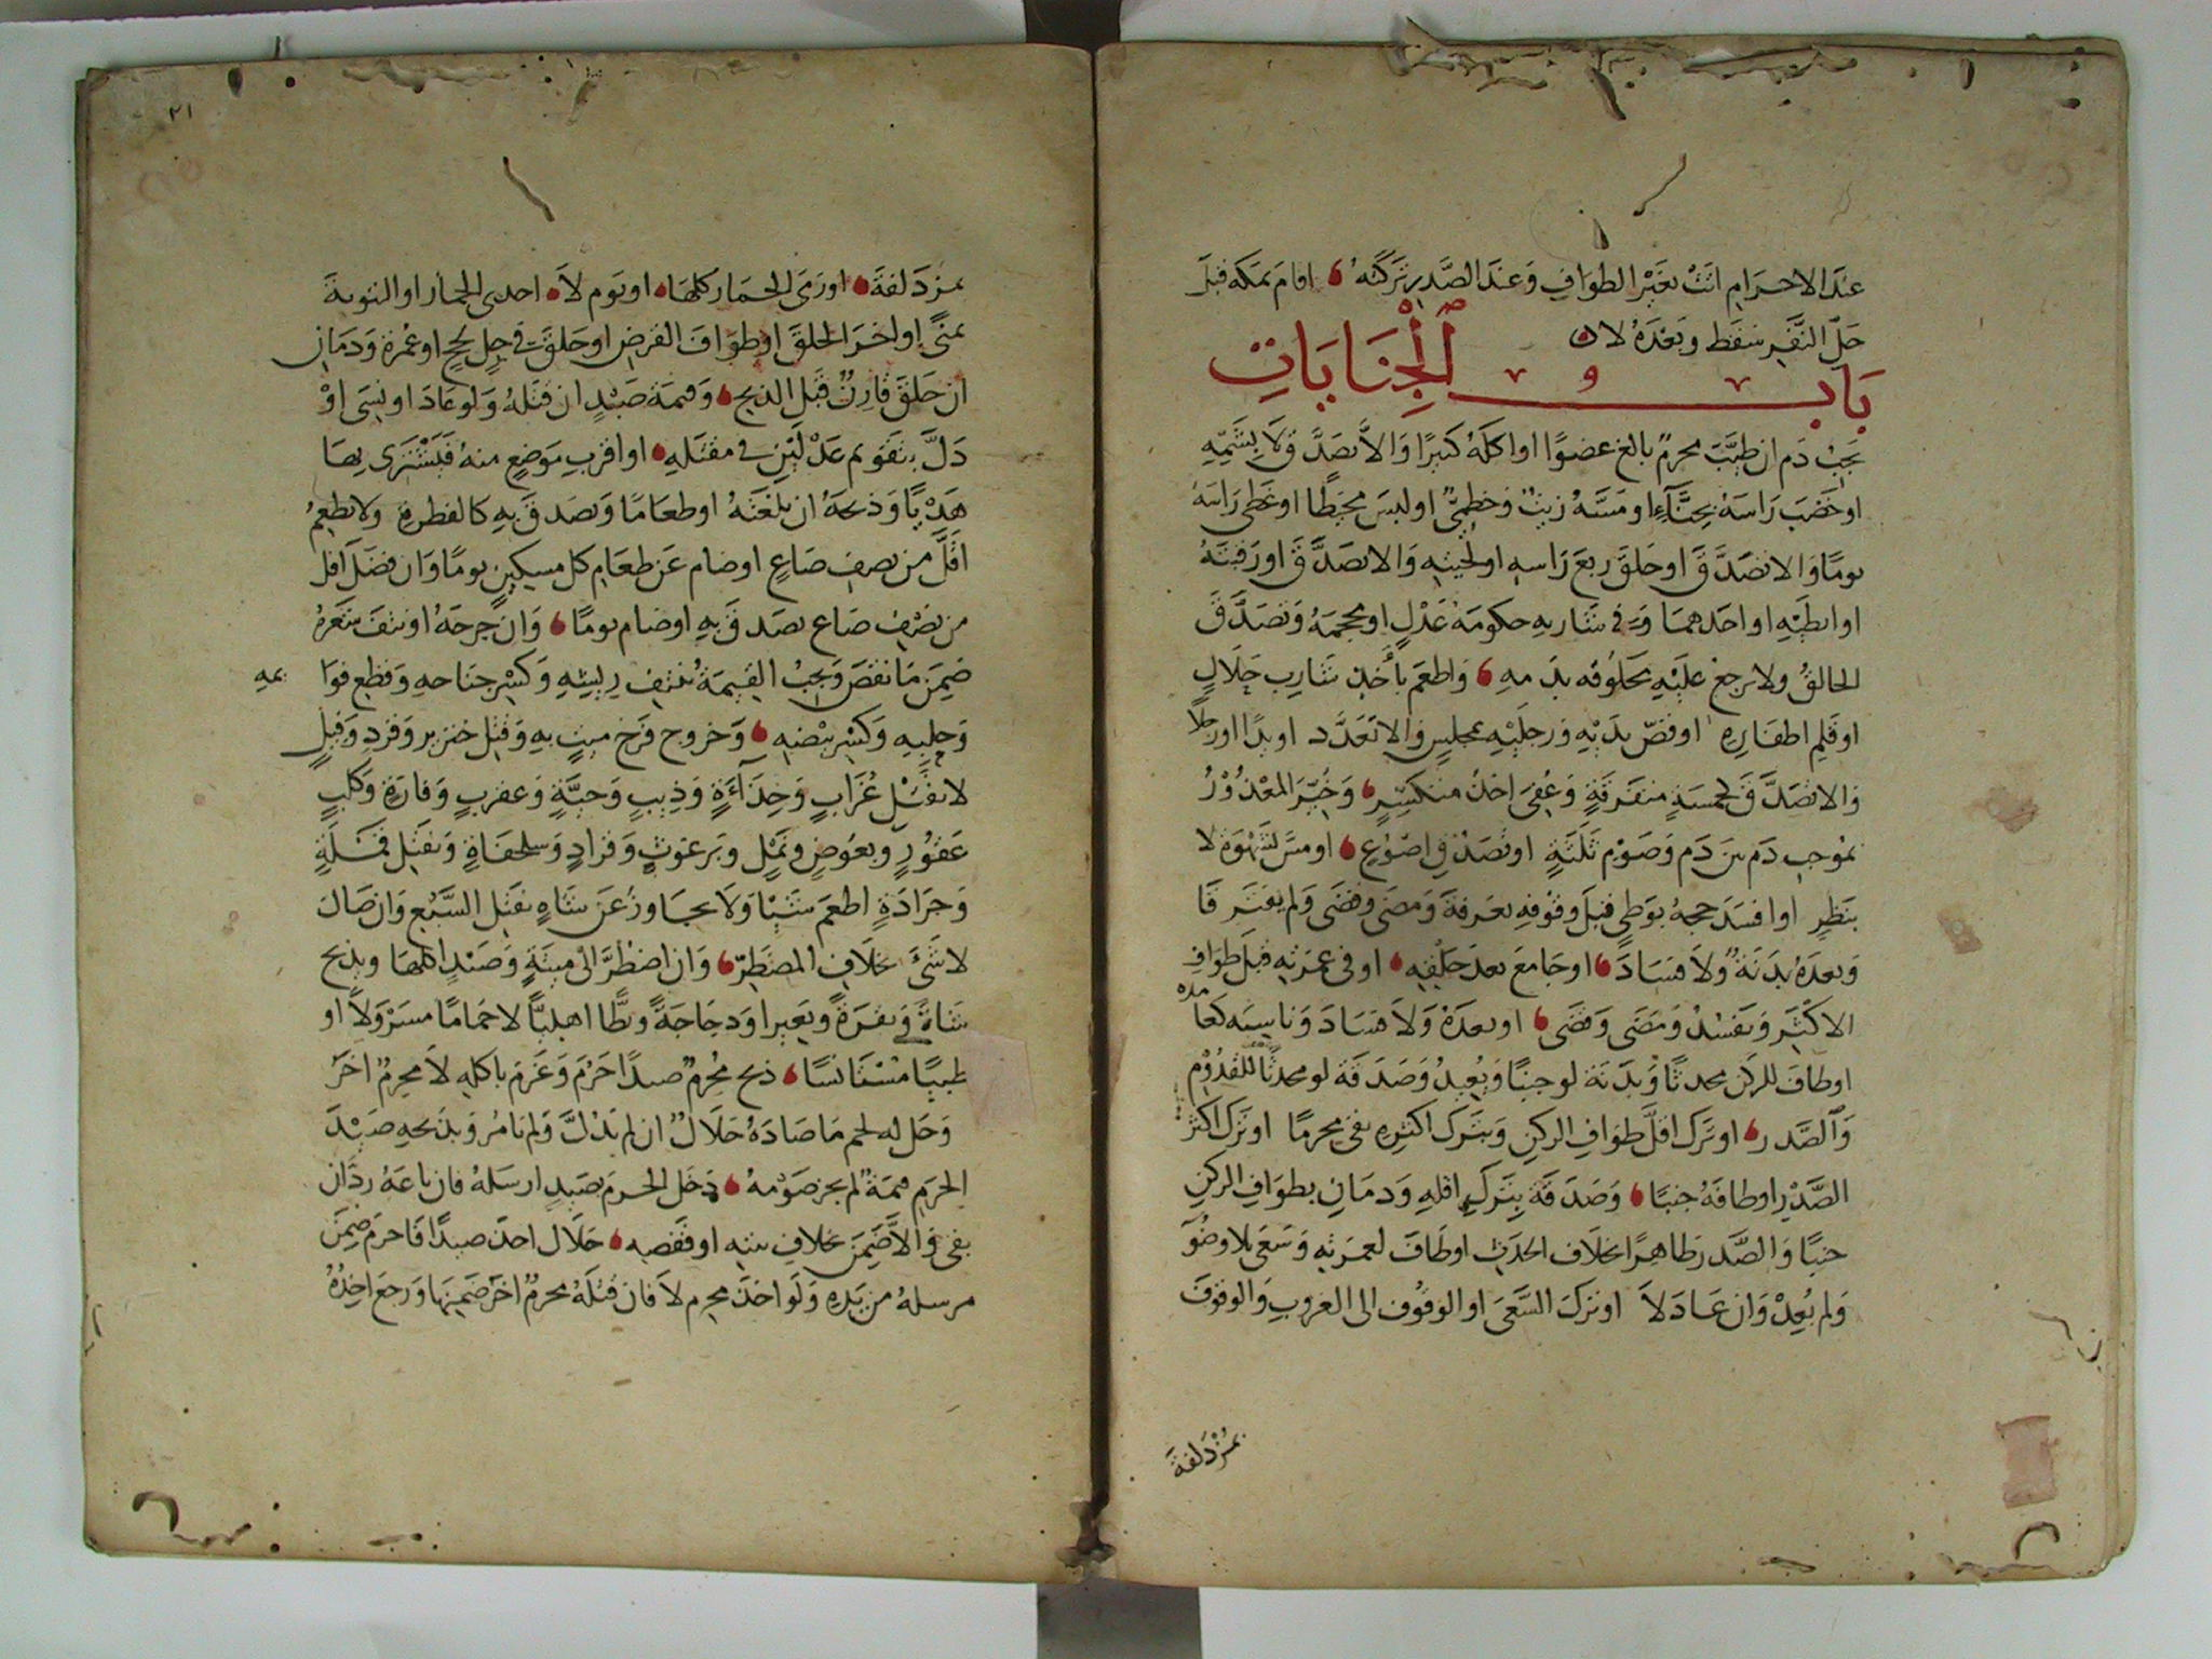 عند الاحرام اتت بغير الطواف وعند الصدر تركته اقام بمكة قبل
حل النفر سقط وبعده لا
باب الجنايات
يجب دم ان طيب محرم بالغ عضوا او اكله كثيرا والا تصدق لا بشمه
او خضب راسه بحناء او مسه زيت وخطمي او لبس مخيطا او غطى راسه
يوما والا تصدق او حلق ربع راسه او لحيته والا تصدق او رقبته
او ابطيه او احدهما وفي شاربه حكومة عدل او محجمه وتصدق
الحالق ولا يرجع عليه محلوقه بدمه واطعم باخذ شارب حلال
او قلم اظفاره او قص يديه ورجليه بمجلس والا تعدد او يدا او رجلا
والا تصدق لخمسة متفرقة وعفي اخذ منكسر وخير المعذور
بموجب دم بين دم وصوم ثلثة او تصدق اصوع او مس لشهوة لا
بنظر او افسد حجه بوطي قبل وقوفه بعرفة ومضى وقضى ولم يفترقا
وبعده بدنة ولا فساد او جامع بعد حلقه او في عمرته قبل طواف
الاكثر وتفسد ومضى وقضى او بعده ولا فساد وناسيه كعامده
او طاف للركن محدثا وبدنة لو جنبا ويعيد وصدقة لو محدثا للقدوم
والصدر او ترك اقل طواف الركن وبترك اكثره بقي محرما او ترك اكثر
الصدر او طافه جنبا وصدقة بترك اقله ودمان بطواف الركن
جنبا والصدر طاهرا بخلاف الحدث او طاف لعمرته وسعى بلا وضوء
ولم يعد وان عاد لا او ترك السعي او الوقوف الى الغروب والوقوف
بمزدلفة
٢١
بمزدلفة او رمي الجمار كلها او يوم لا احدى الجمار او البيتوتة
بمنى او اخر الحلق او طواف الفرض او حلق في حل لحج او عمرة ودمان
ان حلق قارن قبل الذبح وقيمة صيد ان قتله ولو عاد او نسي او
دل بتقويم عدلين في مقتله او اقرب موضع منه فيشتري بها
هديا وذبحه ان بلغته او طعاما وتصدق به كالفطرة ولا يطعم
اقل من نصف صاع او صام عن طعام كل مسكين يوما وان فضل اقل
من نصف صاع تصدق به او صام يوما وان جرحه او نتف شعره
ضمن ما نقص ويجب القيمة بنتف ريشه وكسر جناحه وقطع قوا يمه
وحلبه وكسر بيضه وخروج فرخ ميت به وقتل خنزير وقرد وفيل
لا بقتل غراب وحداءة وذيب وحية وعقرب وفارة وكلب
عقور وبعوض ونمل وبرغوث وقراد وسلحفاة وبقتل قملة
وجرادة اطعم شيئا ولا يجاوز عن شاه بقتل السبع وان صال
لا شيء بخلاف المضطر وان اضطر الى ميتة وصيد اكلها ويذبح
شاة وبقرة وبعيرا ودجاجة وبطا اهليا لا حماما مسرولا او
ظبيا مستانسا ذبح محرم صيدا حرم وغرم باكله لا محرم اخر
وحل له لحم ما صاده حلال ان لم يدل ولم يامر وبذبحه صيد
الحرم قيمة لم يجز صومه دخل الحرم بصيد ارسله فان باعه رد ان
بقي والا ضمن بخلاف بيته او قفصه حلال اخذ صيدا فاحرم ضمن
مرسله من يده ولو اخذ محرم لا فان قتله محرم اخر ضمنها ورجع اخذه